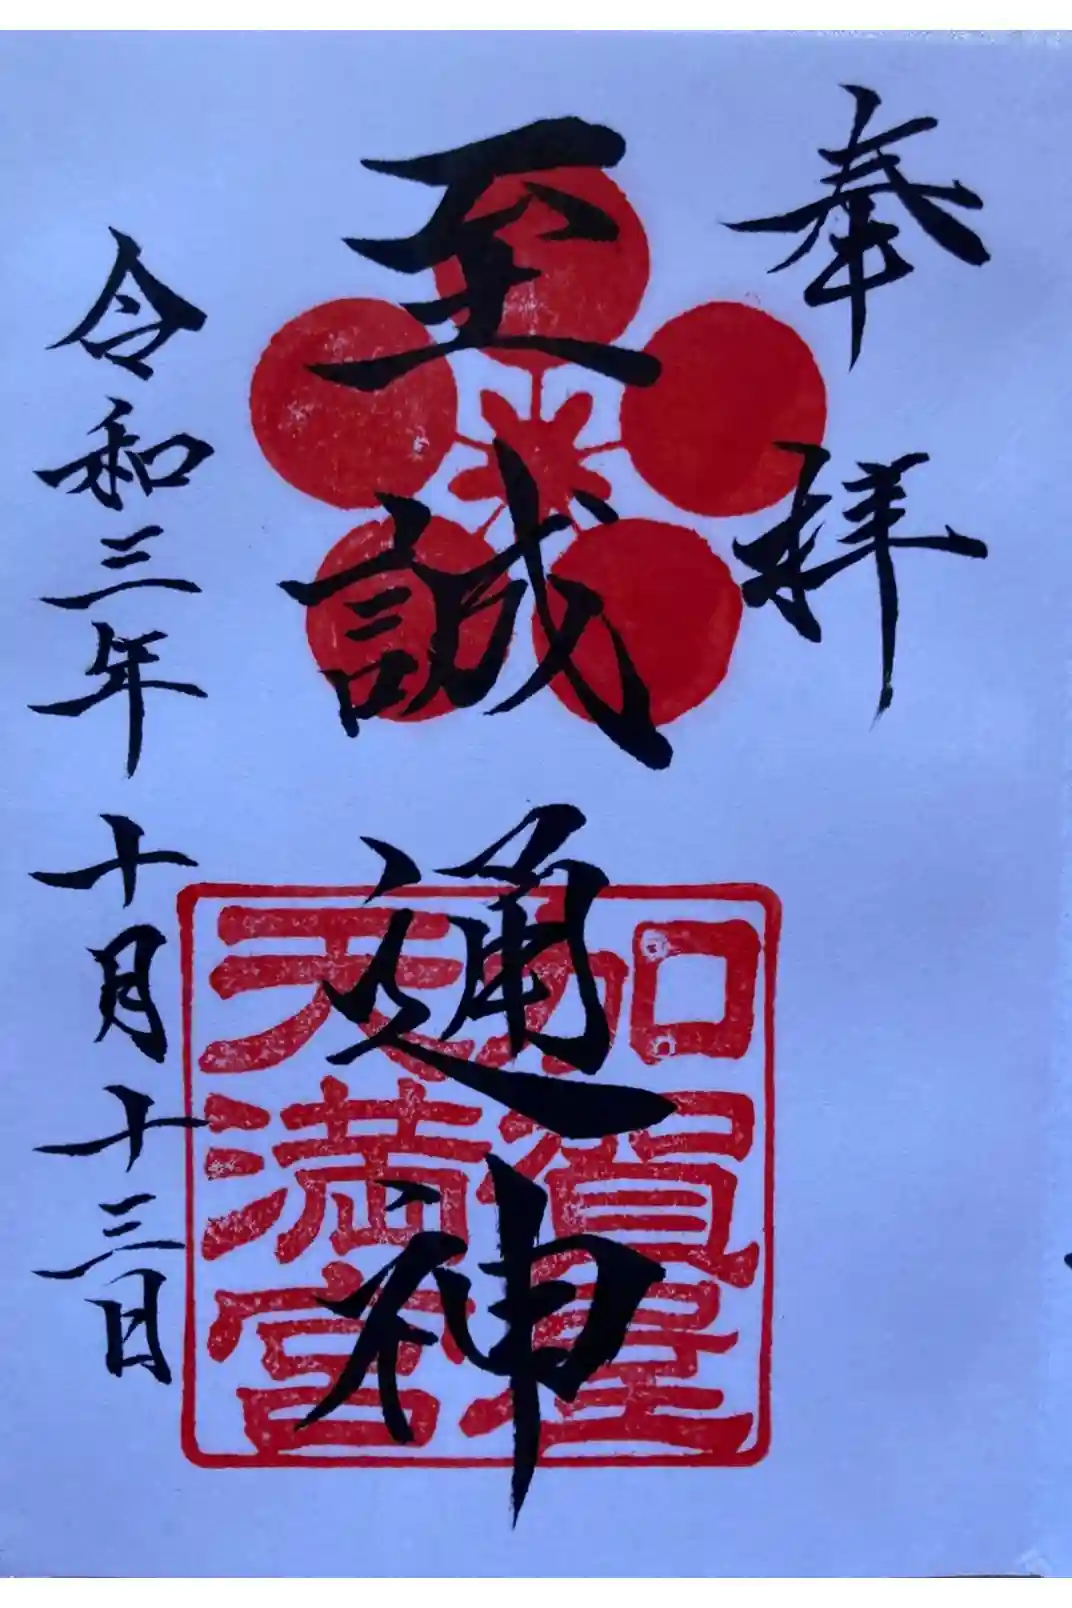 奉拝
至誠通神
加賀星
天満宮
令和三年十月十三日